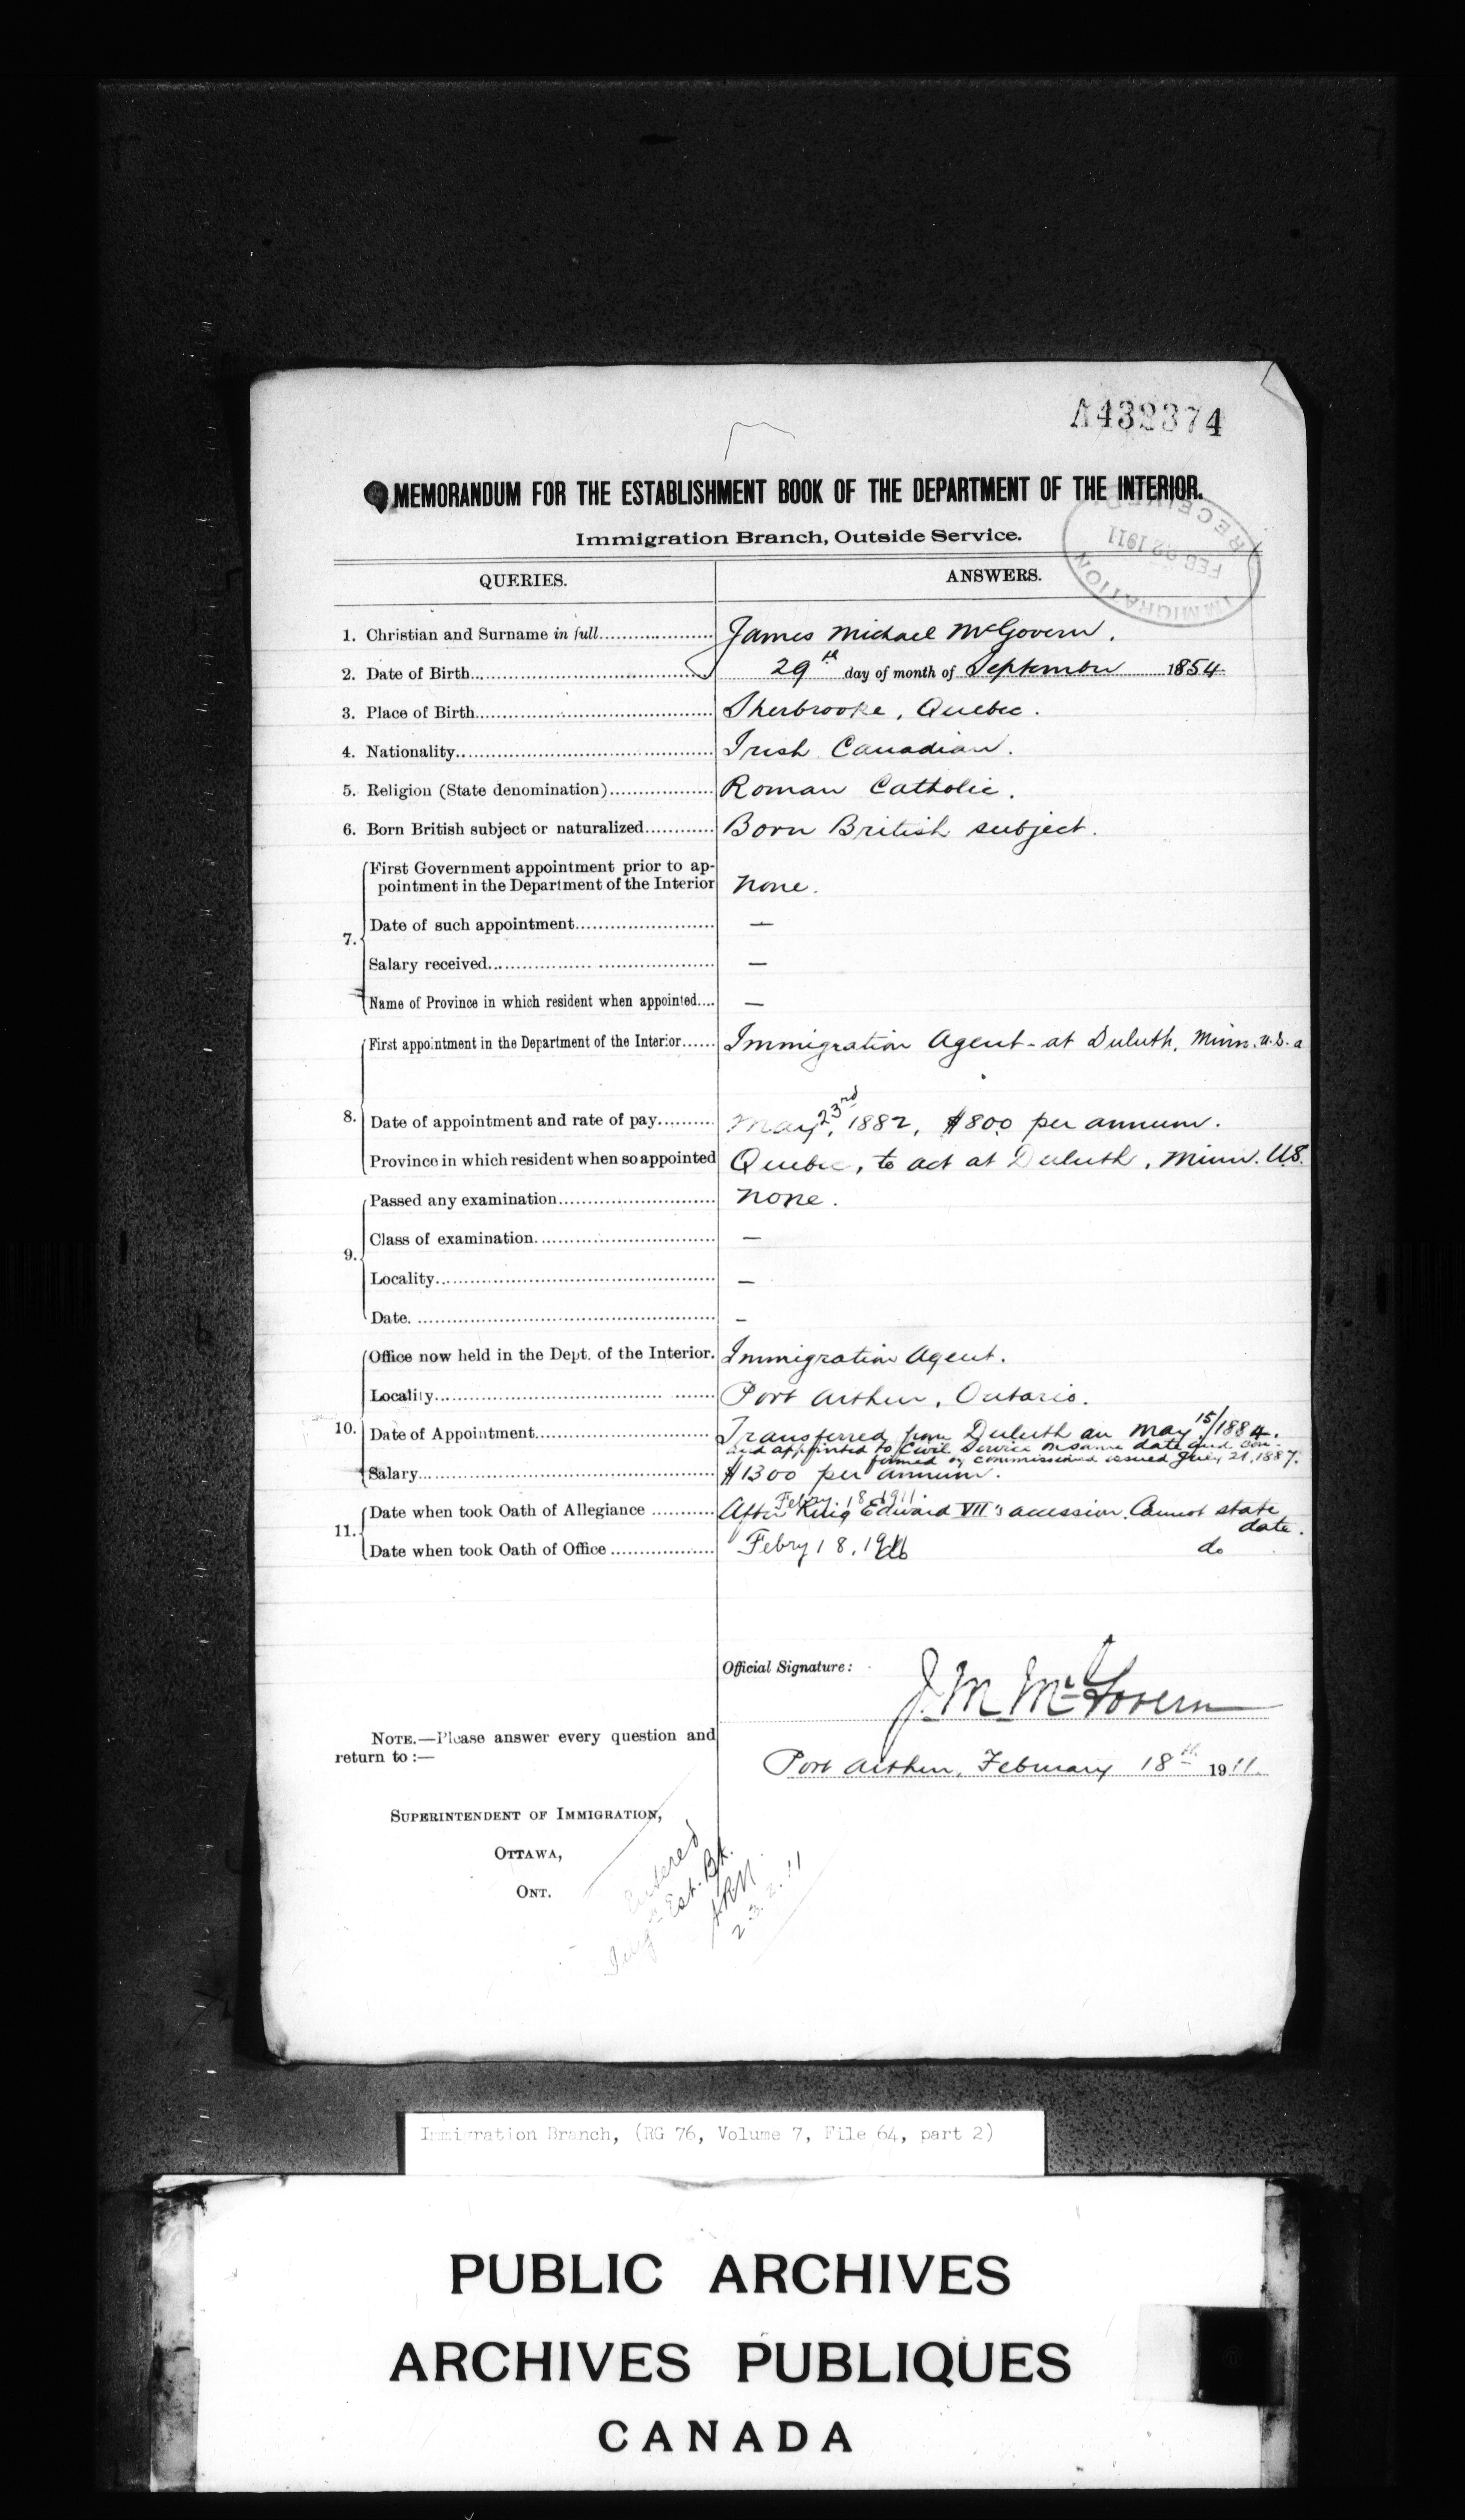 A432374
MEMORANDUM FOR THE ESTABLISHMENT BOOK OF THE DEPARTMENT OF THE INTERIOR.
Immigration Branch, Outside Service.
IMMIGRATION RECEIVED
FEB 22 1911
QUERIES. ANSWERS.
1. Christian and Surname in full James Michael McGovern.
2. Date of Birth 29th day of month of September 1854
3. Place of Birth Sherbrooke, Quebec.
4. Nationality Irish Canadian.
5. Religion (State denomination) Roman Catholic.
6. Born British subject or naturalized Born British subject.
7. First Government appointment prior to ap-
pointment in the Department of the Interior None.
Date of such appointment —
Salary received —
Name of Province in which resident when appointed —
8. First appointment in the Department of the Interior Immigration Agent - at Duluth, Minn. U.S.a
Date of appointment and rate of pay May 23rd, 1882, $800 per annum.
Province in which resident when so appointed Quebec, to act at Duluth, Minn. US.
9. Passed any examination None.
Class of examination —
Locality —
Date. —
10. Office now held in the Dept. of the Interior. Immigration Agent.
Locality Port Arthur, Ontario.
Date of Appointment Transferred from Duluth on May 15/1884.
and appointed to Civil Service on same date and con-
firmed by commission issued July 21, 1887.
Salary $1300 per annum.
11. Febry 18, 1911.
Date when took Oath of Allegiance After King Edward VII's accession. Cannot state
date.
Date when took Oath of Office Febry 18, 1911 do do
Official Signature:
J. M. McGovern
NOTE.—Please answer every question and
return to :—
Port Arthur, February 18th 1911.
SUPERINTENDENT OF IMMIGRATION,
OTTAWA,
ONT.
Entered
Est. Bk.
23.2.11
Immigration Branch, (RG 76, Volume 7, File 64, part 2)
PUBLIC ARCHIVES
ARCHIVES PUBLIQUES
CANADA